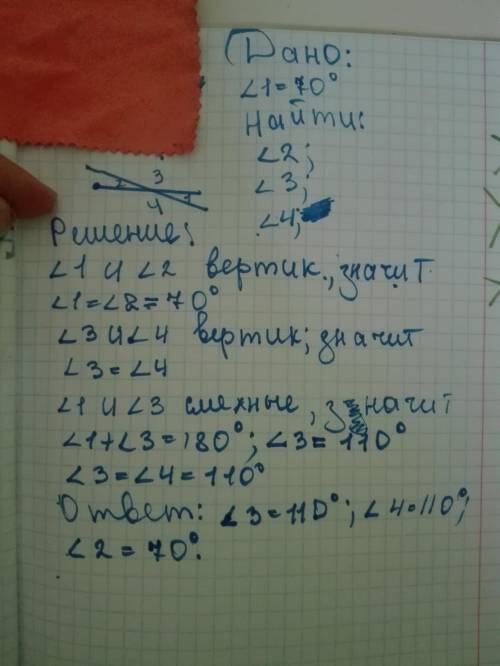 Дано:
∠1=70°
Найти:
∠2;
∠3;
∠4;
2 3 1
4
Решение:
∠1 и ∠2 вертик., значит
∠1=∠2=70°
∠3 и ∠4 вертик; значит
∠3=∠4
∠1 и ∠3 смежные, значит
∠1+∠3=180°; ∠3=110°
∠3=∠4=110°
Ответ: ∠3=110°; ∠4=110°;
∠2=70°.